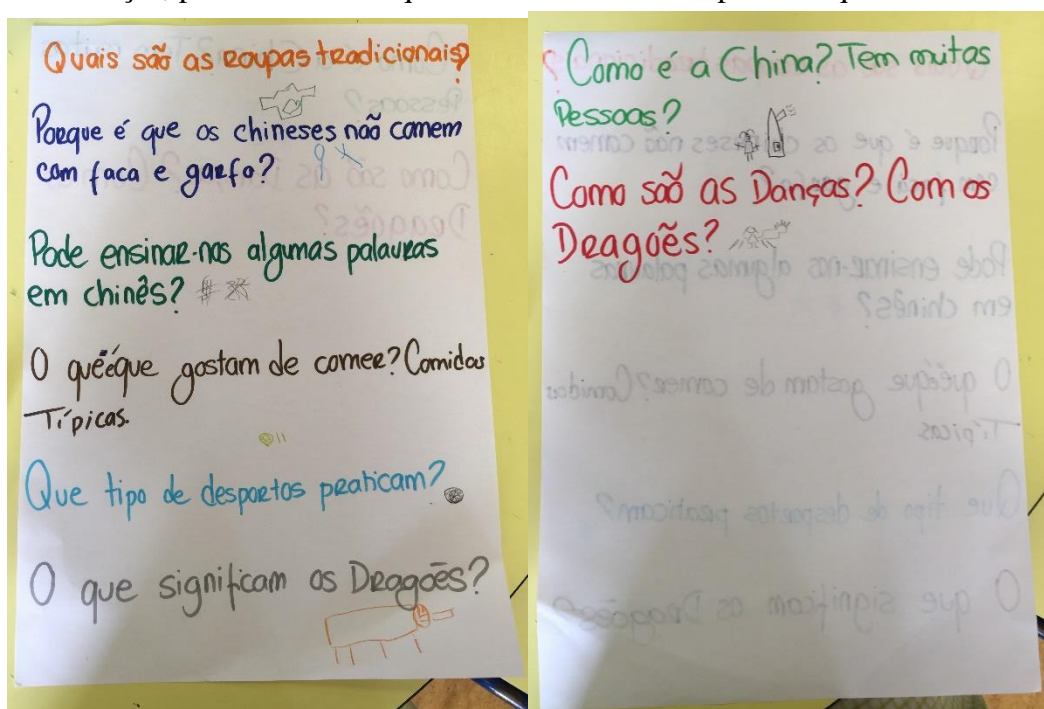 Quais são as roupas tradicionais?
Porque é que os chineses não comem
com faca e garfo?
Pode ensinar-nos algumas palavras
em chinês?
O quêéque gostam de comer? Comidas
Típicas.
Que tipo de desportos praticam?
O que significam os Dragões?
Como é a China? Tem muitas
Pessoas?
Como são as Danças? Com os
Dragões?